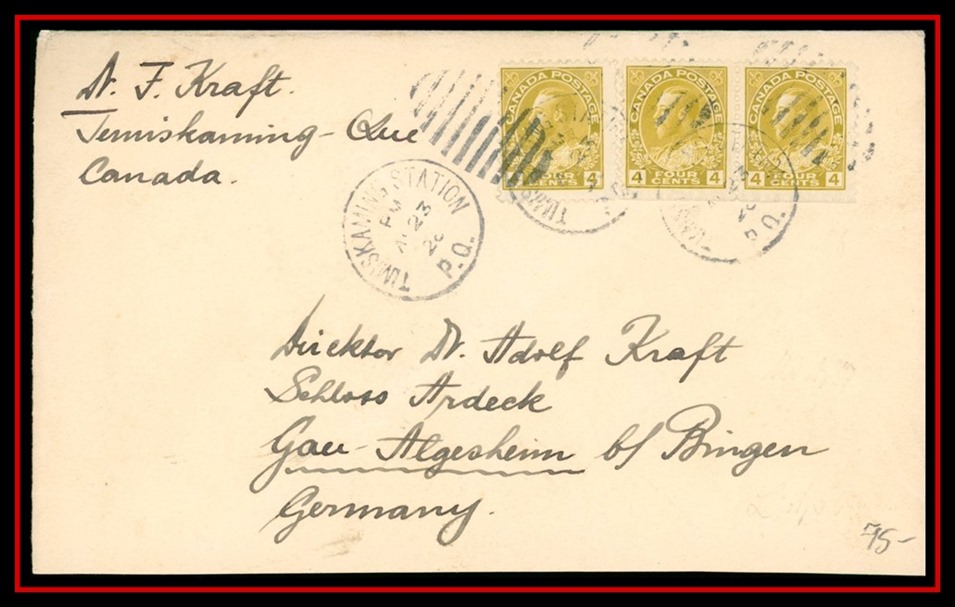 Dr. F. Kraft.
Temiskaming - Que
Canada.
CANADA POSTAGE
4 FOUR CENTS 4
CANADA POSTAGE
4 FOUR CENTS 4
CANADA POSTAGE
4 FOUR CENTS 4
TIMISKAMING STATION
PM
23
P.Q.
P.Q.
Direktor Dr. Adolf Kraft
Schloss Ardeck
Gau-Algesheim b/ Bingen
Germany.
75-